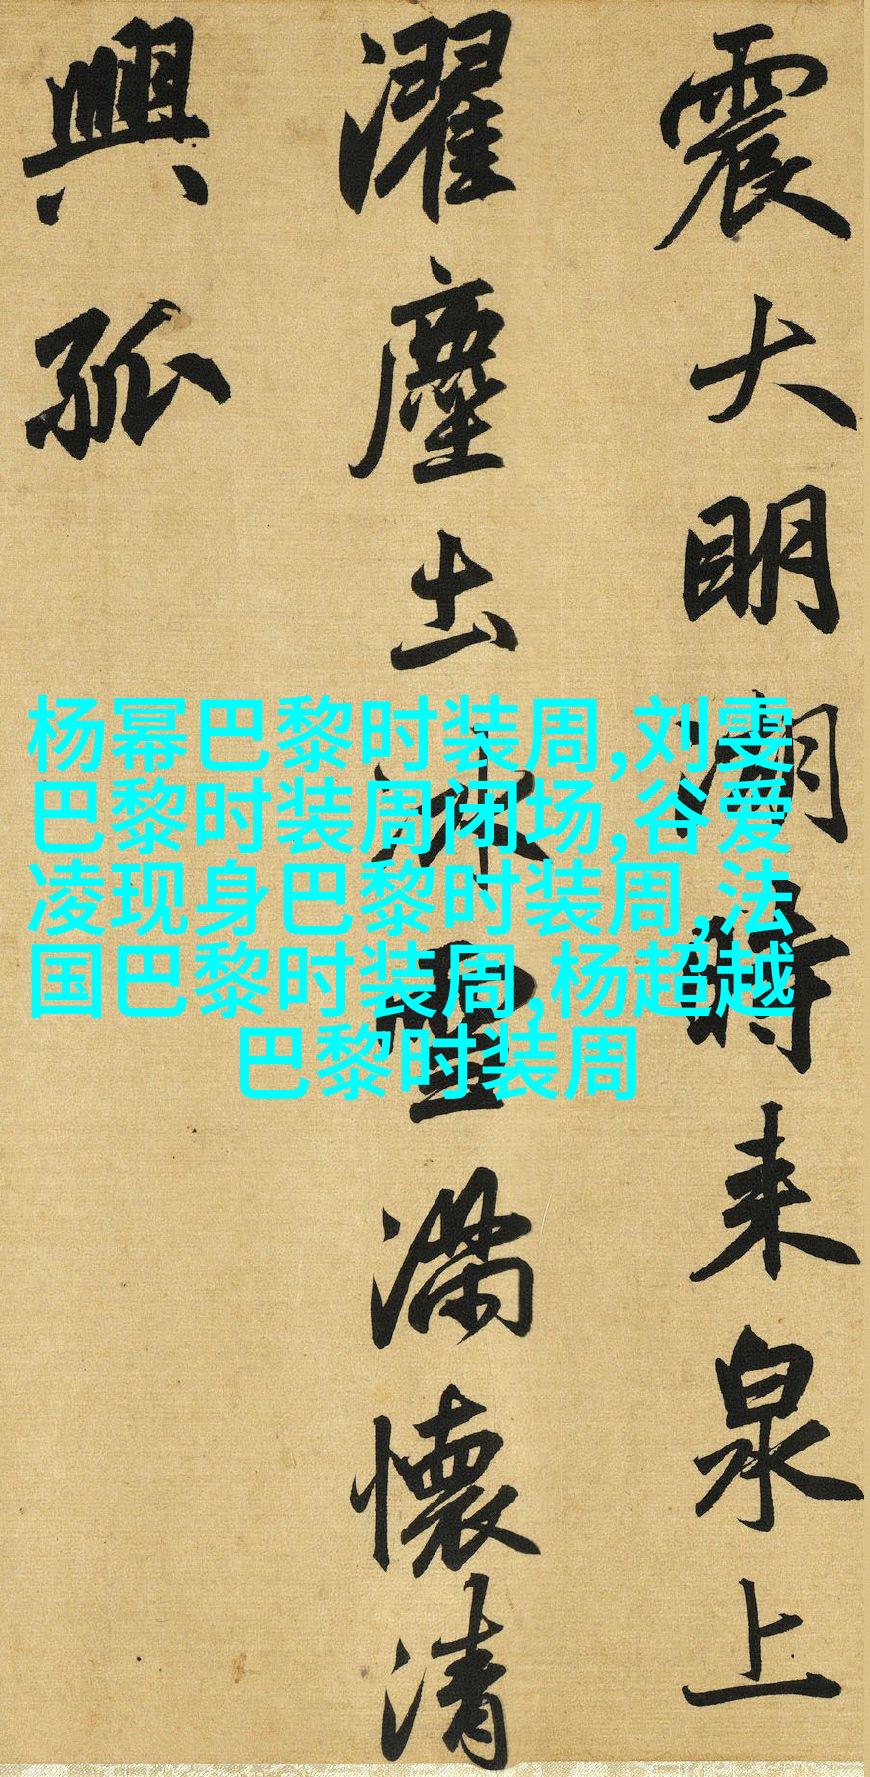 震大明湖時来泉上
濯塵土冰雪滿懷清
興孤
杨幂巴黎时装周,刘雯
巴黎时装周闭场,谷爱
凌现身巴黎时装周,法
国巴黎时装周,杨超越
巴黎时装周